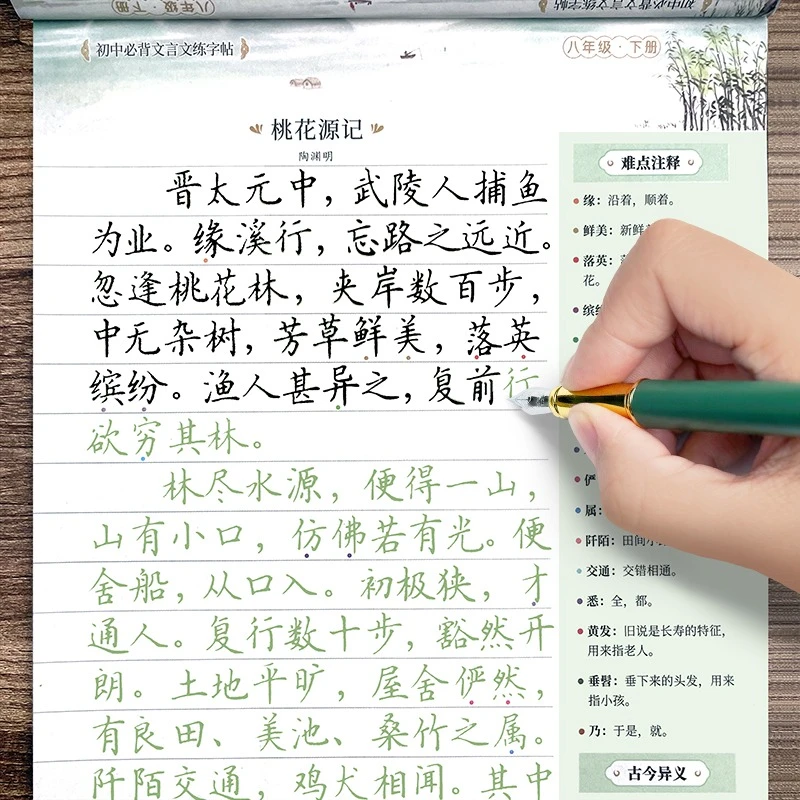 初中必背文言文练字帖
八年级·下册
初中必背文言文练字帖
八年级·下册
桃花源记
陶渊明
晋太元中，武陵人捕鱼
为业。缘溪行，忘路之远近。
忽逢桃花林，夹岸数百步，
中无杂树，芳草鲜美，落英
缤纷。渔人甚异之，复前行
欲穷其林。
林尽水源，便得一山，
山有小口，仿佛若有光。便
舍船，从口入。初极狭，才
通人。复行数十步，豁然开
朗。土地平旷，屋舍俨然，
有良田、美池、桑竹之属。
阡陌交通，鸡犬相闻。其中
难点注释
缘：沿着，顺着。
鲜美：新鲜
落英：
花。
缤纷
俨
属：
阡陌：田间小
交通：交错相通。
悉：全，都。
黄发：旧说是长寿的特征，
用来指老人。
垂髫：垂下来的头发，用来
指小孩。
乃：于是，就。
古今异义